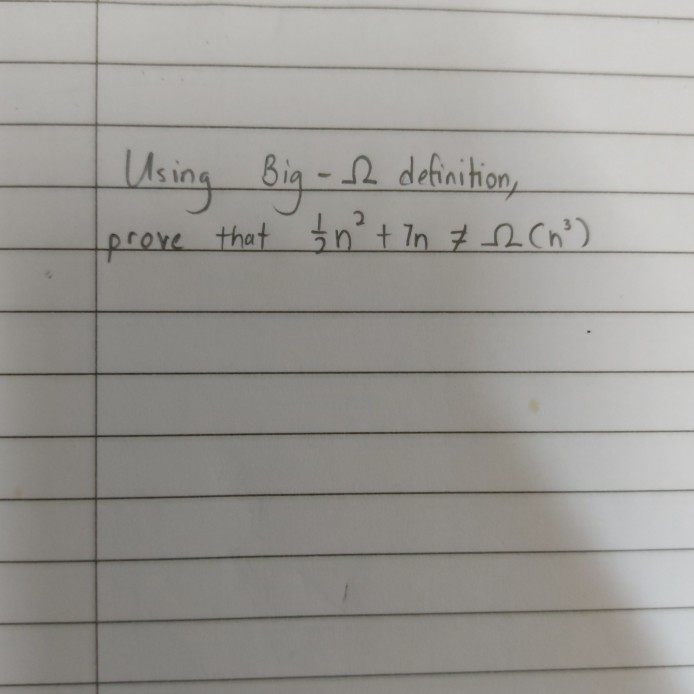 Using Big-Ω definition,
prove that ½n² + 7n ≠ Ω(n³)